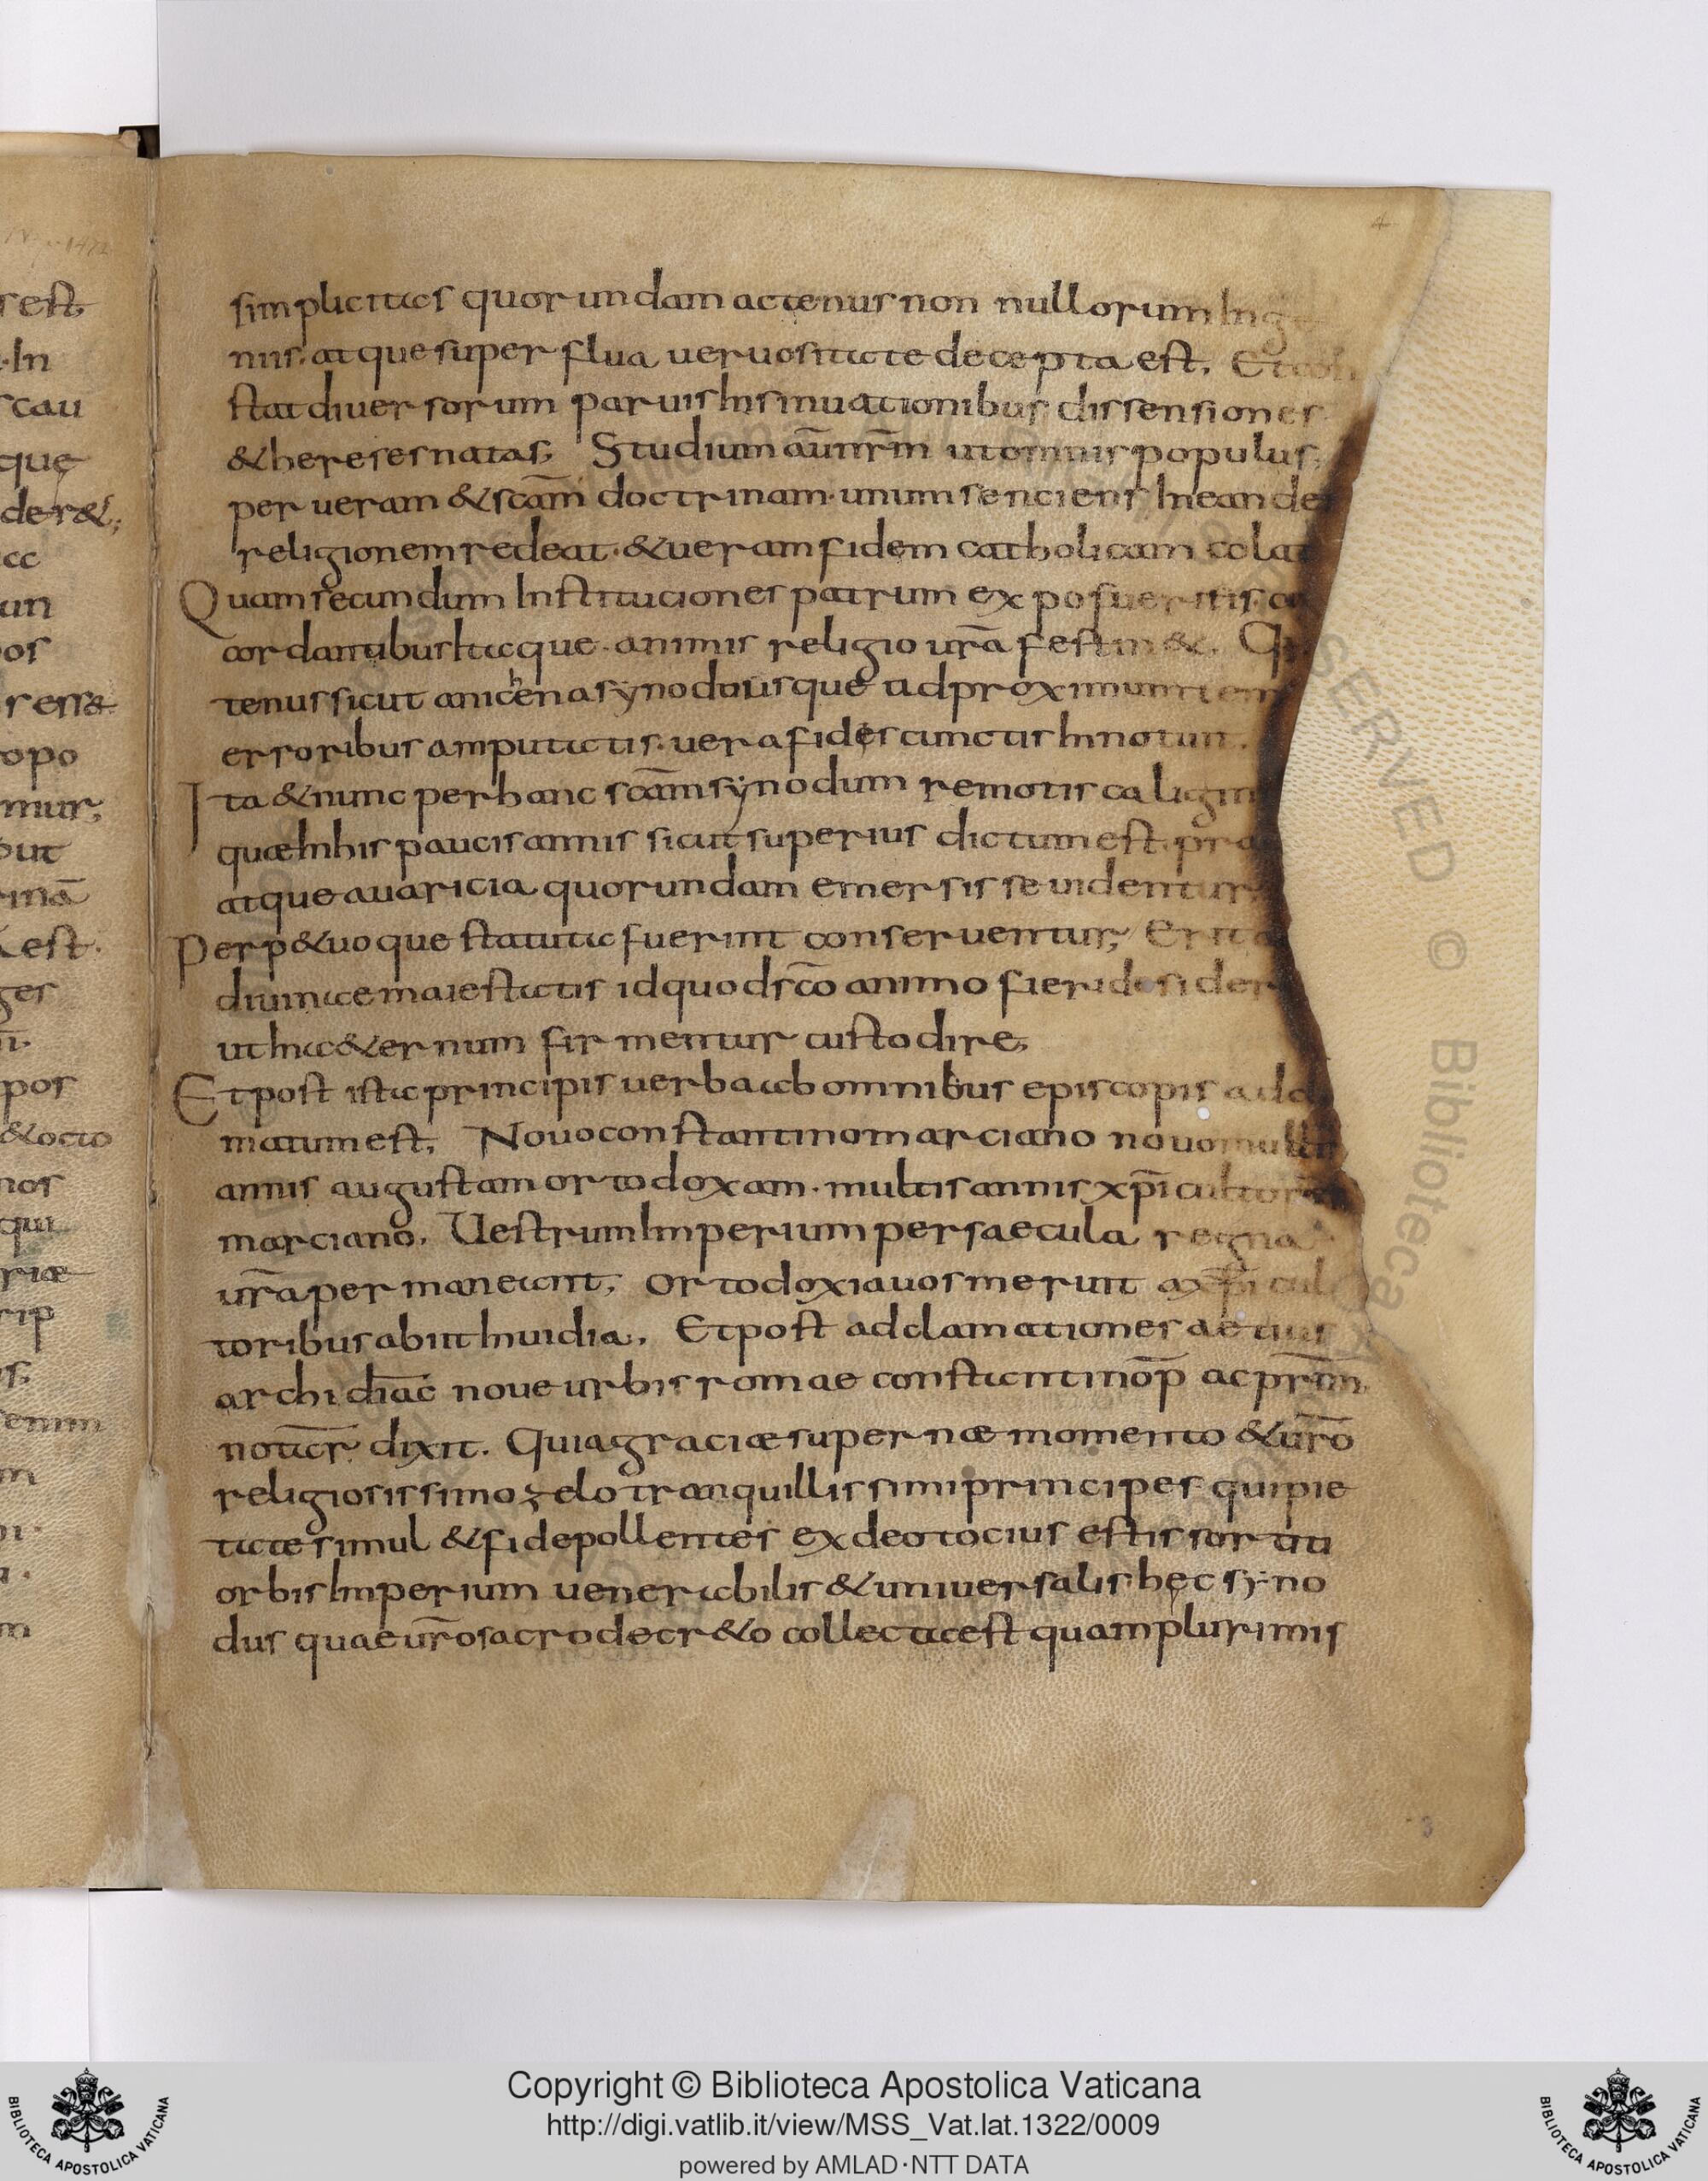 simplicitas quorundam actenus non nullorum Inge
niis. atque super flua veruositate decepta est. Et con
stat diversorum parvis Insinuationibus dissensiones
& hereses natas; Studium aūnr̄m ut omnis populus
per veram & sc̄am doctrinam. unum senciens In eande
religionem redeat. & veram fidem catholicam colat
Quam secundum Institutiones patrum exposueritis. co
cordantibus Itaque. animis religio vr̄a festin&.
tenus sicut anichena synodus usque ad proximum tem
erroribus amputatis. vera fides cunctis Innotuit.
Ita & nunc per hanc sc̄am synodum remotis caligin
quae In his paucis annis sicut superius dictum est. pra
atque avaricia quorundam emersisse videntur.
Perp&uo que statuta fuerint conserventur; Erit
divinae maiestatis id quod sc̄o animo fieri desider
ut In a&ernum firmentur custodire;
Et post ista principis verba ab omnibus episcopis adcla
matum est; Novo constantino marciano novo multis
annis augustam ortodoxam. multis annis xp̄i cultore
marciano. Vestrum Imperium per saecula regna
vr̄a permaneant; Ortodoxia vos meruit a xp̄i cul
toribus abiit Invidia. Et post adclamationes aetius
archidiac̄ nove urbis romae constantinop̄ ac prīm
notar̄ dixit. Quia graciæ supernæ momento & vr̄o
religiosissimo zelo tranquillissimi principes qui pie
tate simul & fide pollentes ex deo tocius estis sortiti
orbis Imperium venerabilis & universalis hęc syno
dus quae vr̄o sacro decr&o collecta est quam plurimis
4
3
r est;
. In
s cau
quę
der&;
un
os
opo
mur;
ut
est.
ges
pos
& octo
nos
qui
riæ
rip
enim
Copyright © Biblioteca Apostolica Vaticana
http://digi.vatlib.it/view/MSS_Vat.lat.1322/0009
powered by AMLAD·NTT DATA
BIBLIOTECA APOSTOLICA VATICANA
BIBLIOTECA APOSTOLICA VATICANA